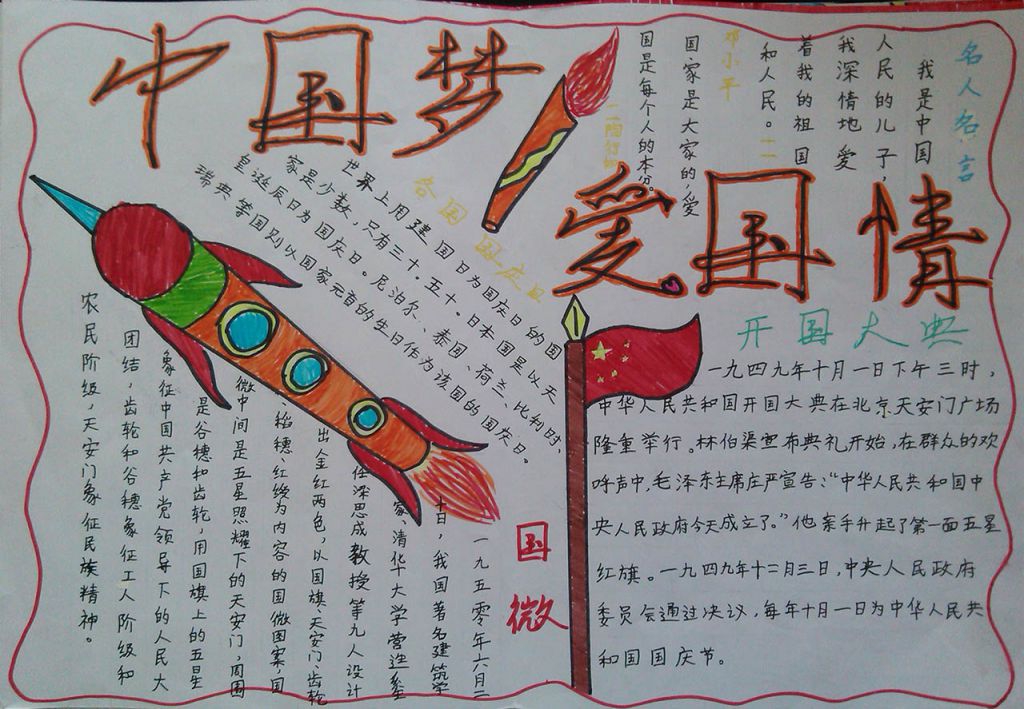 中国梦
爱国情
名人名言
我是中国
人民的儿子，
我深情地爱
着我的祖国
和人民。——
邓小平
国家是大家的，爱
国是每个人的本份。
——陶行知
各国国庆日
世界上用建国日为国庆日的国
家是少数，只有三十.五十。日本国是以天
皇诞辰日为国庆日。尼泊尔、泰国、荷兰、比利时、
瑞典等国则以国家元首的生日作为该国的国庆日。
开国大典
一九四九年十月一日下午三时，
中华人民共和国开国大典在北京天安门广场
隆重举行。林伯渠宣布典礼开始，在群众的欢
呼声中，毛泽东主席庄严宣告：“中华人民共和国中
央人民政府今天成立了。”他亲手升起了第一面五星
红旗。一九四九年十二月三日，中央人民政府
委员会通过决议，每年十月一日为中华人民共
和国国庆节。
国微
一九五零年六月二
十日，我国著名建筑学
家、清华大学营造系
任深思成教授等九人设计
出金红两色，以国旗、天安门、齿轮
、稻穗、红绶为内容的国微图案，国
微中间是五星照耀下的天安门，周围
是谷穗和齿轮，用国旗上的五星
象征中国共产党领导下的人民大
团结，齿轮和谷穗象征工人阶级和
农民阶级，天安门象征民族精神。